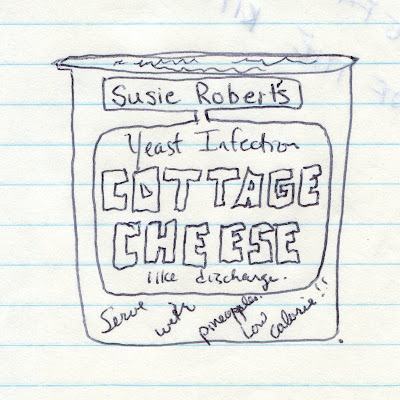 Susie Robert's
Yeast Infection
COTTAGE
CHEESE
like discharge.
Serve with pineapples.
Low calorie!!